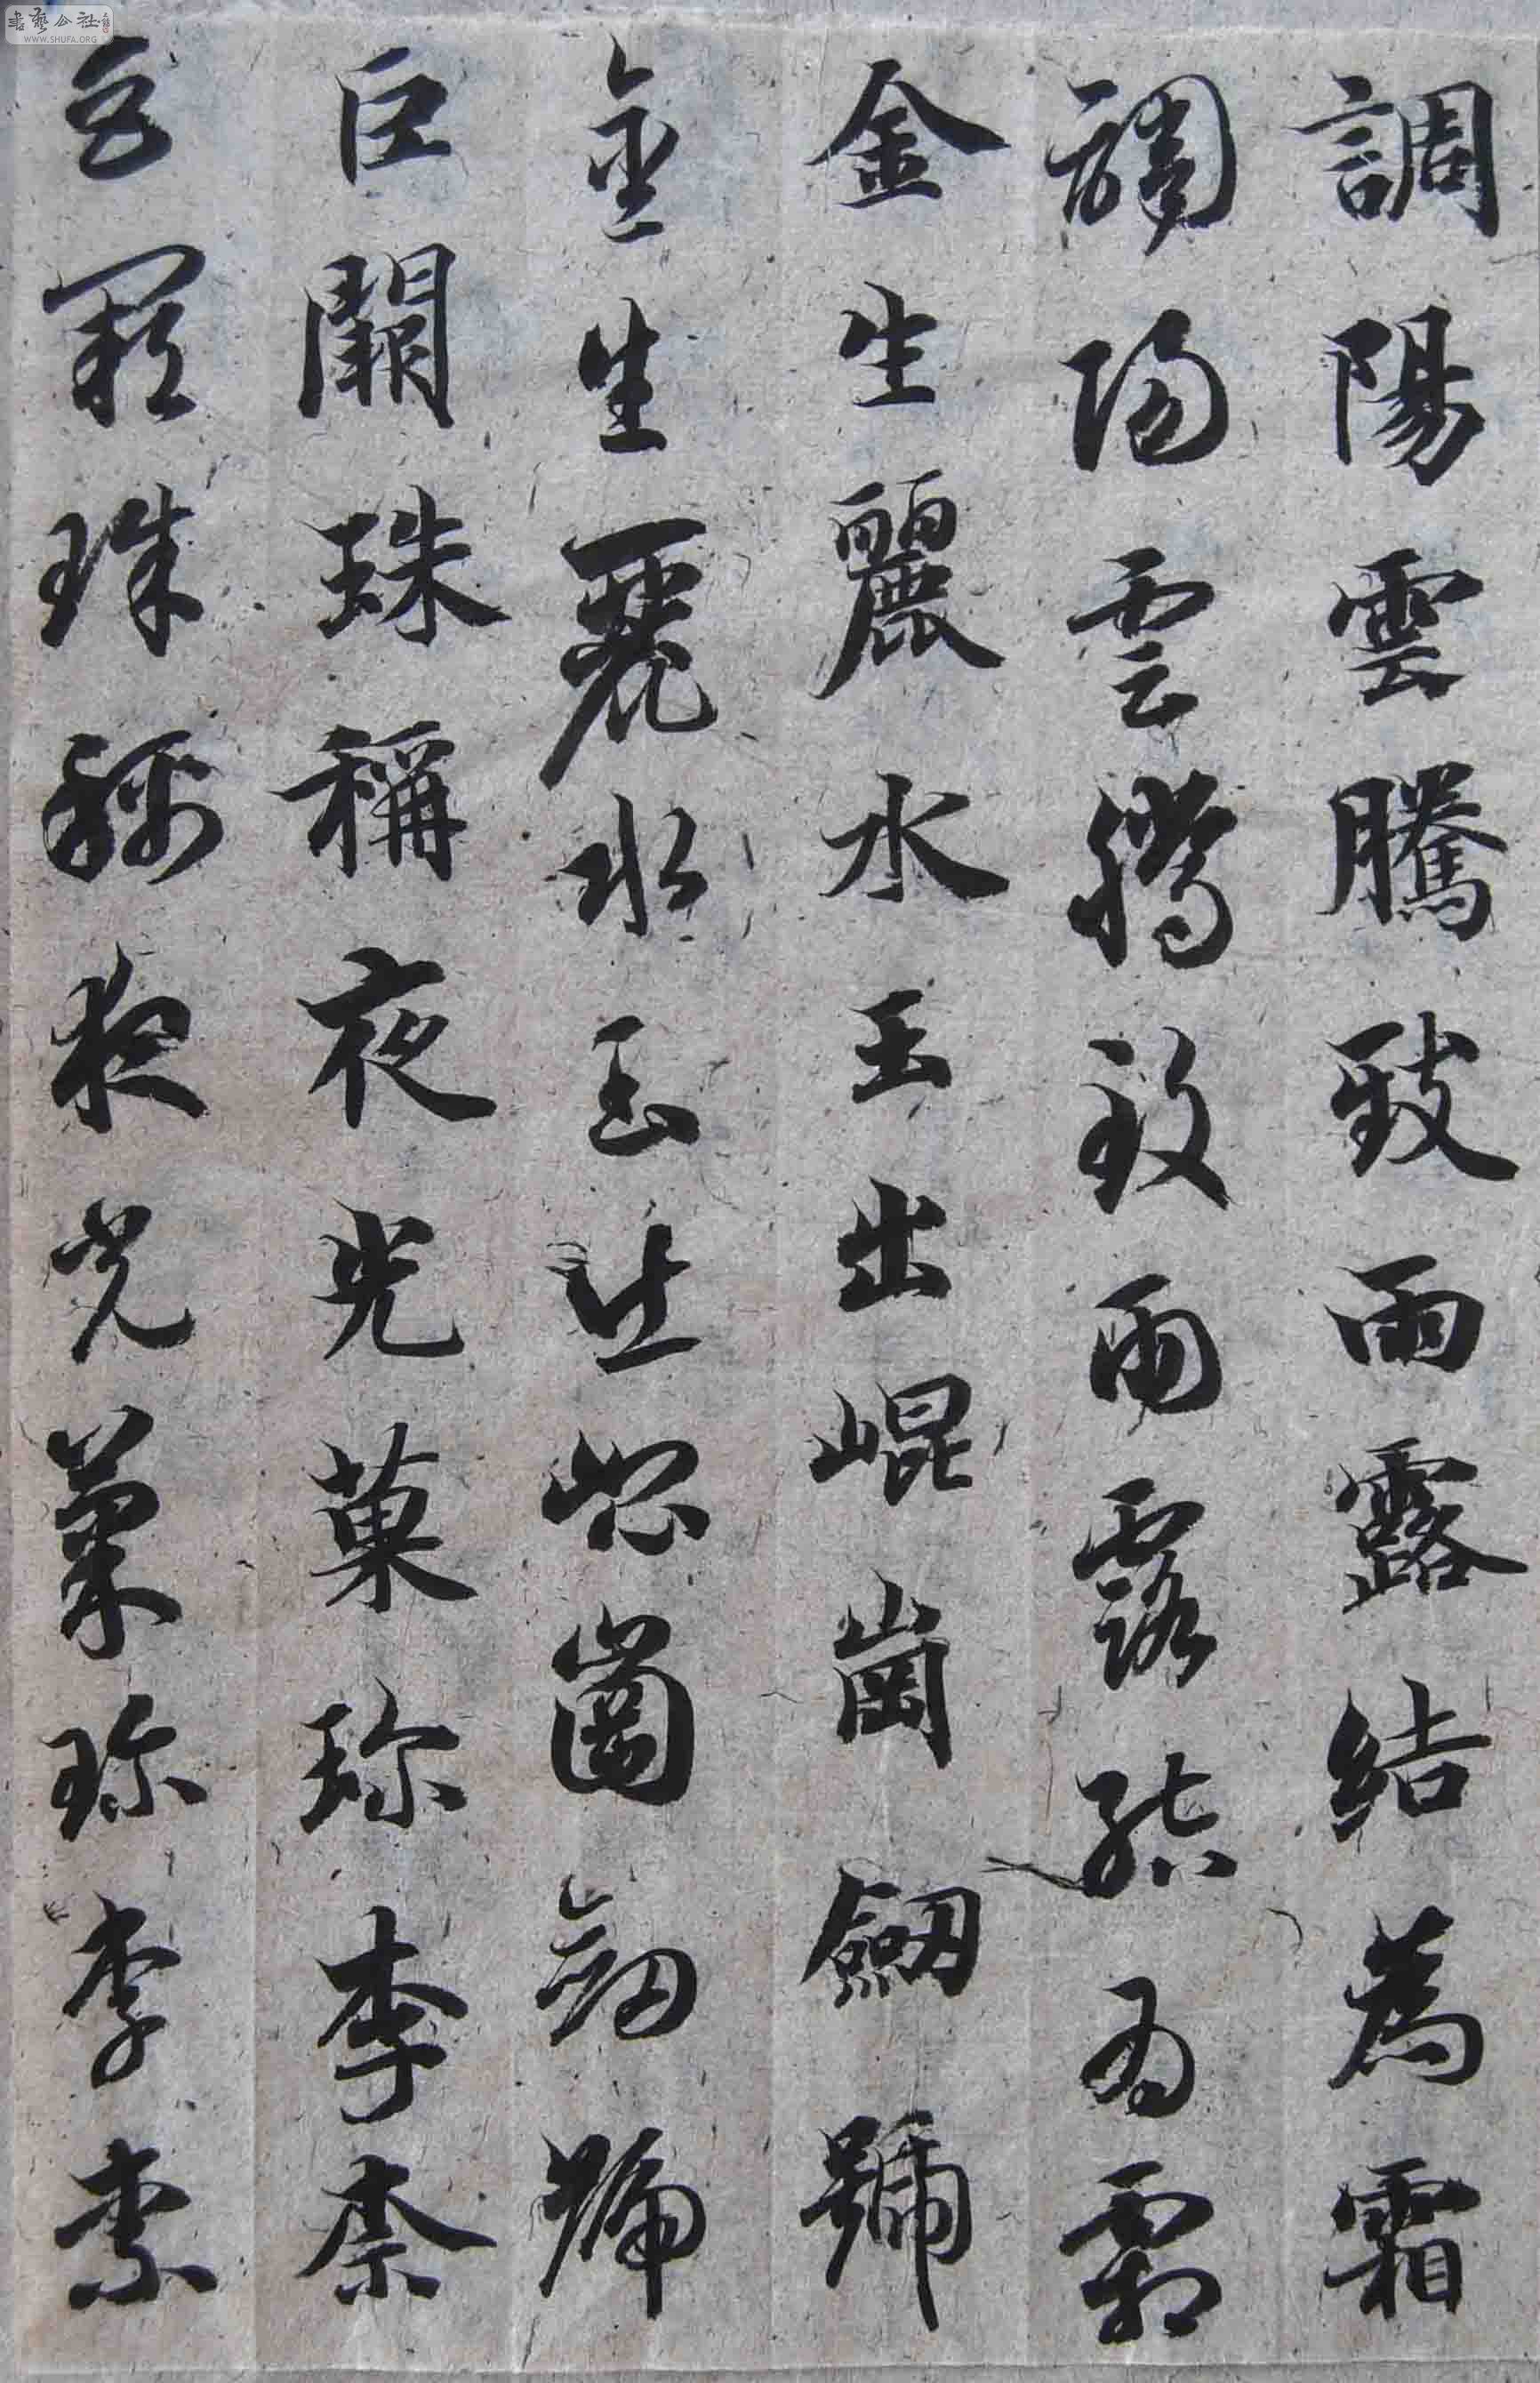 調陽雲騰致雨露結為霜
調陽雲騰致雨露結為霜
金生麗水玉出崐崗劔號
金生麗水玉出崐崗劔號
巨闕珠稱夜光菓珎李柰
巨闕珠稱夜光菓珎李柰
書藝公社
WWW.SHUFA.ORG